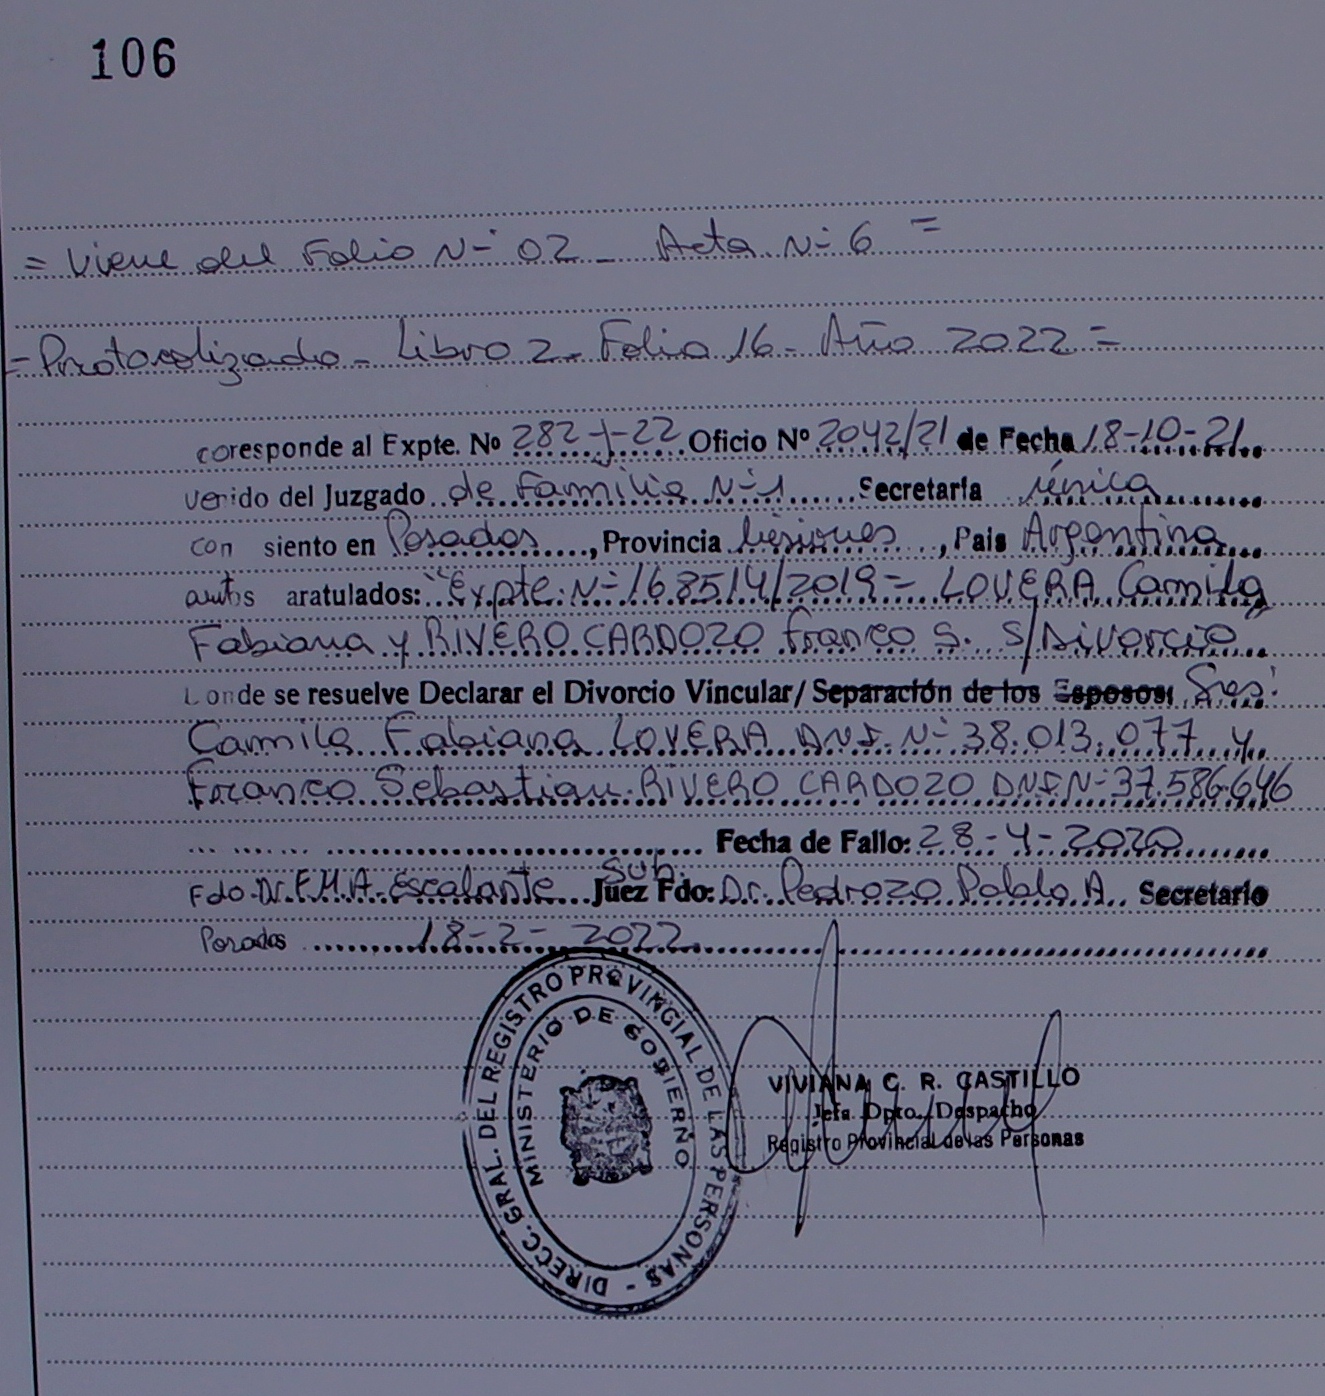 106
= Viene del Folio Nº 02 - Acta Nº 6 =
= Protocolizado - Libro 2 - Folio 16 - Año 2022 =
coresponde al Expte. Nº 282-J-22 Oficio Nº 2042/21 de Fecha 18-10-21
venido del Juzgado de Familia Nº 1 Secretaría única
con siento en Posadas, Provincia Misiones, Pais Argentina
autos aratulados: "Expte. Nº 168514/2019 = LOVERA Camila
Fabiana y RIVERO CARDOZO Franco S. S/Divorcio
Donde se resuelve Declarar el Divorcio Vincular/ Separación de los Esposos: Sres:
Camila Fabiana LOVERA DNI. Nº 38.013.077 y
Franco Sebastian RIVERO CARDOZO DNI. Nº 37.586.646
Fecha de Fallo: 28-4-2020
Fdo. Dr. F.M.A. Escalante Sub. Juez Fdo: Dr. Pedrozo Pablo A. Secretario
Posadas 18-2-2022
DIRECC. GRAL. DEL REGISTRO PROVINCIAL DE LAS PERSONAS -
MINISTERIO DE GOBIERNO
VIVIANA C. R. CASTILLO
Jefa Dpto. Despacho
Registro Provincial de las Personas